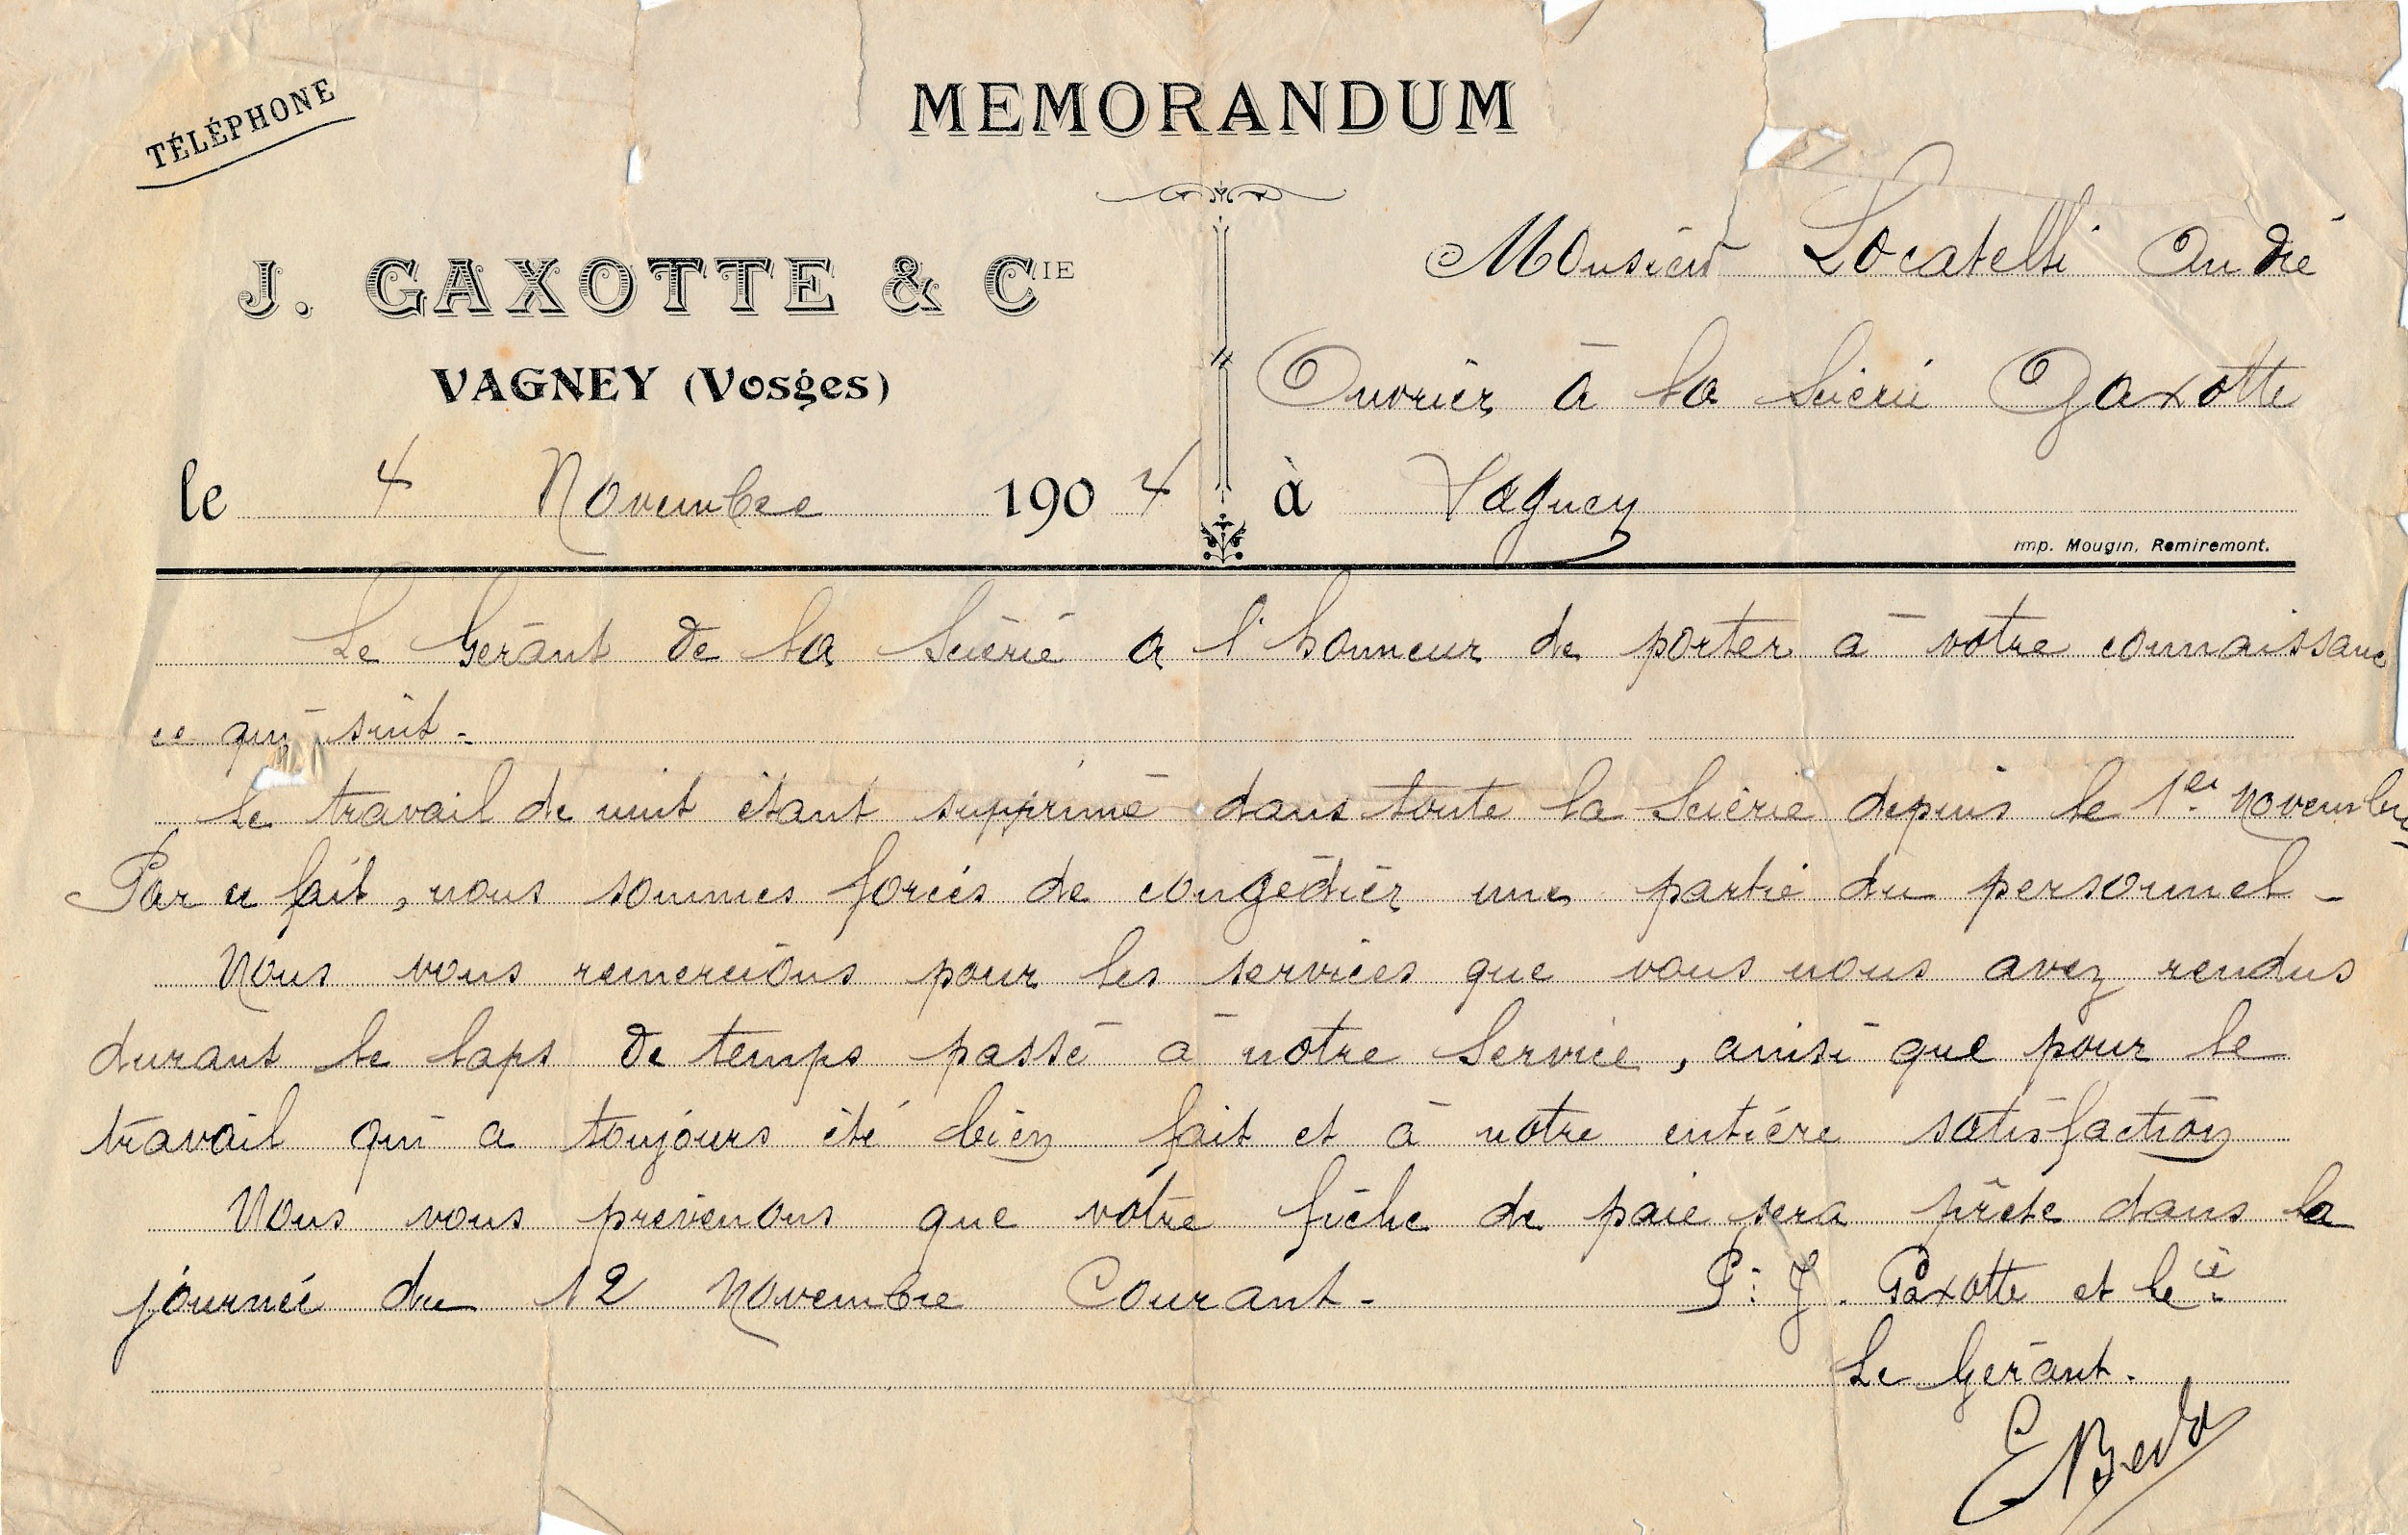 TÉLÉPHONE
MEMORANDUM
J. GAXOTTE & CIE
VAGNEY (Vosges)
le 4 Novembre 1904
Monsieur Locatelli André
Ouvrier à la Scierie Gaxotte
à Vagney
Imp. Mougin, Remiremont.
Le Gérant de la Scierie a l'honneur de porter à votre connaissance
ce qui suit -
Le travail de nuit étant supprimé dans toute la Scierie depuis le 1er Novembre
Par ce fait, nous sommes forcés de congédier une partie du personnel -
Nous vous remercions pour les services que vous nous avez rendus
durant le laps de temps passé à notre Service, ainsi que pour le
travail qui a toujours été bien fait et à notre entière satisfaction
Nous vous prévenons que votre fiche de paie sera prête dans la
journée du 12 Novembre Courant -
P: J. Gaxotte et Cie
Le Gérant.